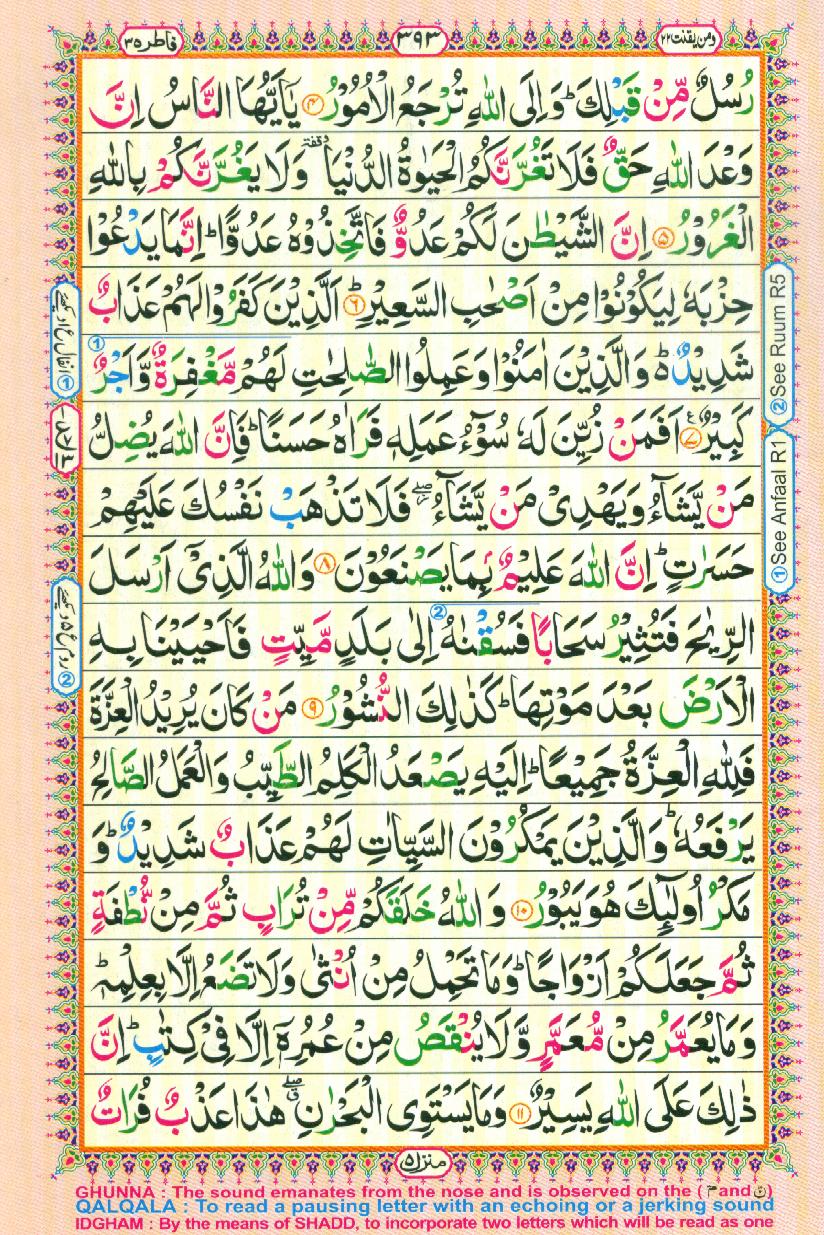 ومن يقنت ٢٢
٣٩٣
فاطر ٣٥
رُسُلٌ مِّنْ قَبْلِكَ ؕ وَاِلَى اللّٰهِ تُرْجَعُ الْاُمُوْرُ ﴿۴﴾ يٰۤاَيُّهَا النَّاسُ اِنَّ
وَعْدَ اللّٰهِ حَقٌّ فَلَا تَغُرَّنَّكُمُ الْحَيٰوةُ الدُّنْيَا ٝ وقفة وَلَا يَغُرَّنَّكُمْ بِاللّٰهِ
الْغَرُوْرُ ﴿۵﴾ اِنَّ الشَّيْطٰنَ لَكُمْ عَدُوٌّ فَاتَّخِذُوْهُ عَدُوًّا ؕ اِنَّمَا يَدْعُوْا
حِزْبَهٗ لِيَكُوْنُوْا مِنْ اَصْحٰبِ السَّعِيْرِ ﴿۶﴾ؕ اَلَّذِيْنَ كَفَرُوْا لَهُمْ عَذَابٌ
شَدِيْدٌ ؕ۬ وَالَّذِيْنَ اٰمَنُوْا وَعَمِلُوا الصّٰلِحٰتِ لَهُمْ مَّغْفِرَةٌ وَّاَجْرٌ ①
كَبِيْرٌ ﴿۷﴾ اَفَمَنْ زُيِّنَ لَهٗ سُوْٓءُ عَمَلِهٖ فَرَاٰهُ حَسَنًا ؕ فَاِنَّ اللّٰهَ يُضِلُّ
مَنْ يَّشَآءُ وَيَهْدِيْ مَنْ يَّشَآءُ ۖؗ فَلَا تَذْهَبْ نَفْسُكَ عَلَيْهِمْ
حَسَرٰتٍ ؕ اِنَّ اللّٰهَ عَلِيْمٌۢ بِمَا يَصْنَعُوْنَ ﴿۸﴾ وَاللّٰهُ الَّذِيْۤ اَرْسَلَ
الرِّيٰحَ فَتُثِيْرُ سَحَابًا فَسُقْنٰهُ ② اِلٰى بَلَدٍ مَّيِّتٍ فَاَحْيَيْنَا بِهِ
الْاَرْضَ بَعْدَ مَوْتِهَا ؕ كَذٰلِكَ النُّشُوْرُ ﴿۹﴾ مَنْ كَانَ يُرِيْدُ الْعِزَّةَ
فَلِلّٰهِ الْعِزَّةُ جَمِيْعًا ؕ اِلَيْهِ يَصْعَدُ الْكَلِمُ الطَّيِّبُ وَالْعَمَلُ الصَّالِحُ
يَرْفَعُهٗ ؕ وَالَّذِيْنَ يَمْكُرُوْنَ السَّيِّاٰتِ لَهُمْ عَذَابٌ شَدِيْدٌ ؕ وَ
مَكْرُ اُولٰٓئِكَ هُوَ يَبُوْرُ ﴿۱۰﴾ وَاللّٰهُ خَلَقَكُمْ مِّنْ تُرَابٍ ثُمَّ مِنْ نُّطْفَةٍ
ثُمَّ جَعَلَكُمْ اَزْوَاجًا ؕ وَمَا تَحْمِلُ مِنْ اُنْثٰى وَلَا تَضَعُ اِلَّا بِعِلْمِهٖ ؕ
وَمَا يُعَمَّرُ مِنْ مُّعَمَّرٍ وَّلَا يُنْقَصُ مِنْ عُمُرِهٖۤ اِلَّا فِيْ كِتٰبٍ ؕ اِنَّ
ذٰلِكَ عَلَى اللّٰهِ يَسِيْرٌ ﴿۱۱﴾ وَمَا يَسْتَوِي الْبَحْرٰنِ ۖۗ هٰذَا عَذْبٌ فُرَاتٌ
②See Ruum R5
①See Anfaal R1
① انفال ع ۱ دیکھئے
② روم ع ۵ دیکھئے
منزل ۵
GHUNNA : The sound emanates from the nose and is observed on the (مّ and نّ)
QALQALA : To read a pausing letter with an echoing or a jerking sound
IDGHAM : By the means of SHADD, to incorporate two letters which will be read as one